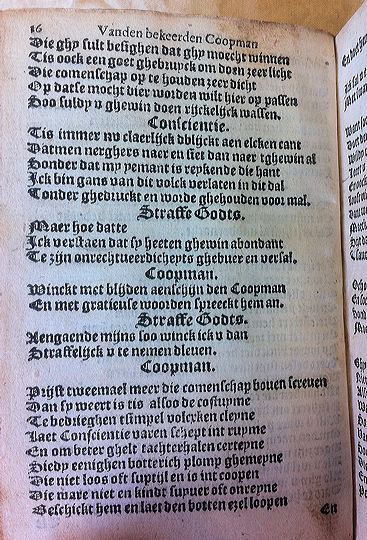 16 Vanden bekeerden Coopman
Die ghy sult besighen dat ghy moecht winnen
Tis oock een goet ghebruyck om doen zeer licht
Die comenschap op te houden zeer dicht
Op datse mocht dier worden wilt hier op passen
Soo suldy u ghewin doen rijckelijck wassen.
Conscientie.
Tis immer nv claerlijck dblijckt aen elcken cant
Datmen nerghers naer en siet dan naer tghewin al
Sonder dat my yemant is reykende die hant
Ick bin gans van dit volck verlaten in dit dal
Tonder ghedruckt en worde ghehouden voor mal.
Straffe Godts.
Maer hoe datte
Ick verstaen dat sy heeten ghewin abondant
Te zijn onrechtueerdicheyts ghebuer en versal.
Coopman.
Winckt met blijden aenschijn den Coopman
En met gratieuse woorden spreeckt hem an.
Straffe Godts.
Aengaende mijns soo winck ick v dan
Straffelijck v te nemen dleuen.
Coopman.
Prijst tweemael meer die comenschap bouen screuen
Dan sy weert is tis alsoo de costuyme
Te bedrieghen tsimpel volcxken cleyne
Laet Conscientie varen schept int ruyme
En om beter ghelt tachterhalen certeyne
Siedy eenighen botterich plomp ghemeyne
Die niet loos oft suptijl en is int coopen
Die ware niet en kindt supuer oft onreyne
Beschickt hem en laet den botten ezel loopen
En